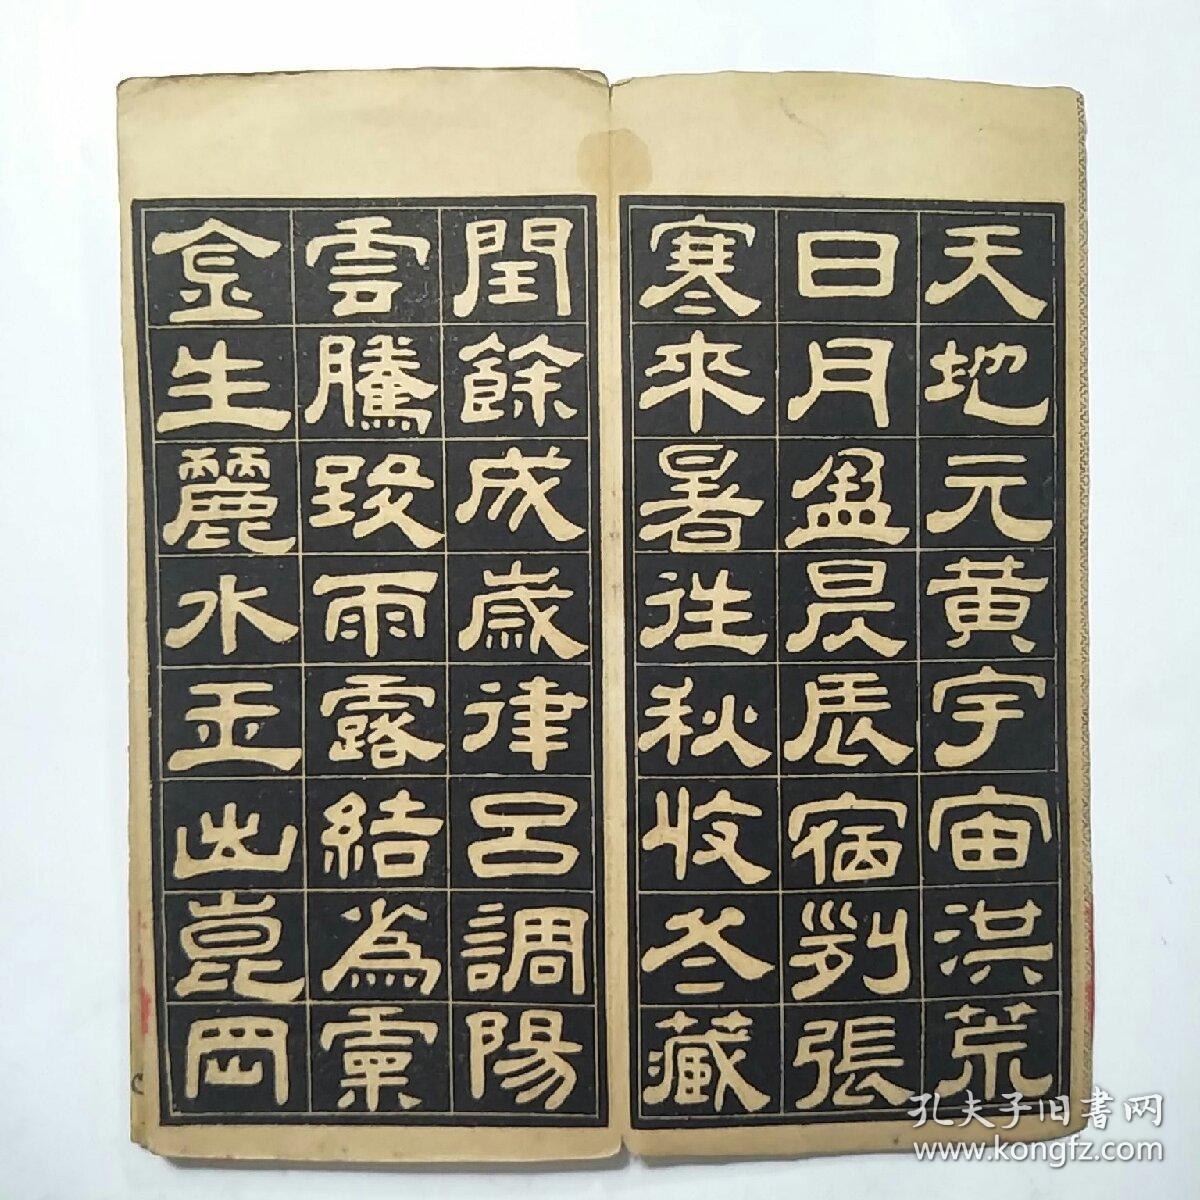 天地元黄宇宙洪荒
日月盈昃辰宿列張
寒來暑往秋收冬藏
閏餘成歲律呂調陽
雲騰致雨露結為霜
金生麗水玉出崑岡
孔夫子旧書网
www.kongfz.com